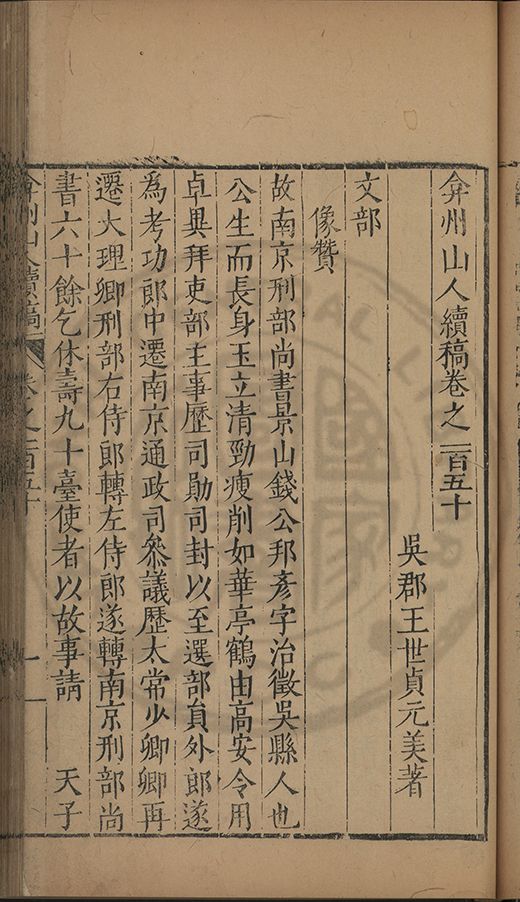 弇州山人續稿卷之一百五十
吳郡王世貞元美著
文部
像贊
故南京刑部尚書景山錢公邦彥字治徵吳縣人也
公生而長身玉立清勁瘦削如華亭鶴由高安令用
卓異拜吏部主事歷司勛司封以至選部員外郎遂
為考功郎中遷南京通政司叅議歷太常少卿卿再
遷大理卿刑部右侍郎轉左侍郎遂轉南京刑部尚
書六十餘乞休壽九十臺使者以故事請　天子
弇州山人續稿　卷之一百五十　一